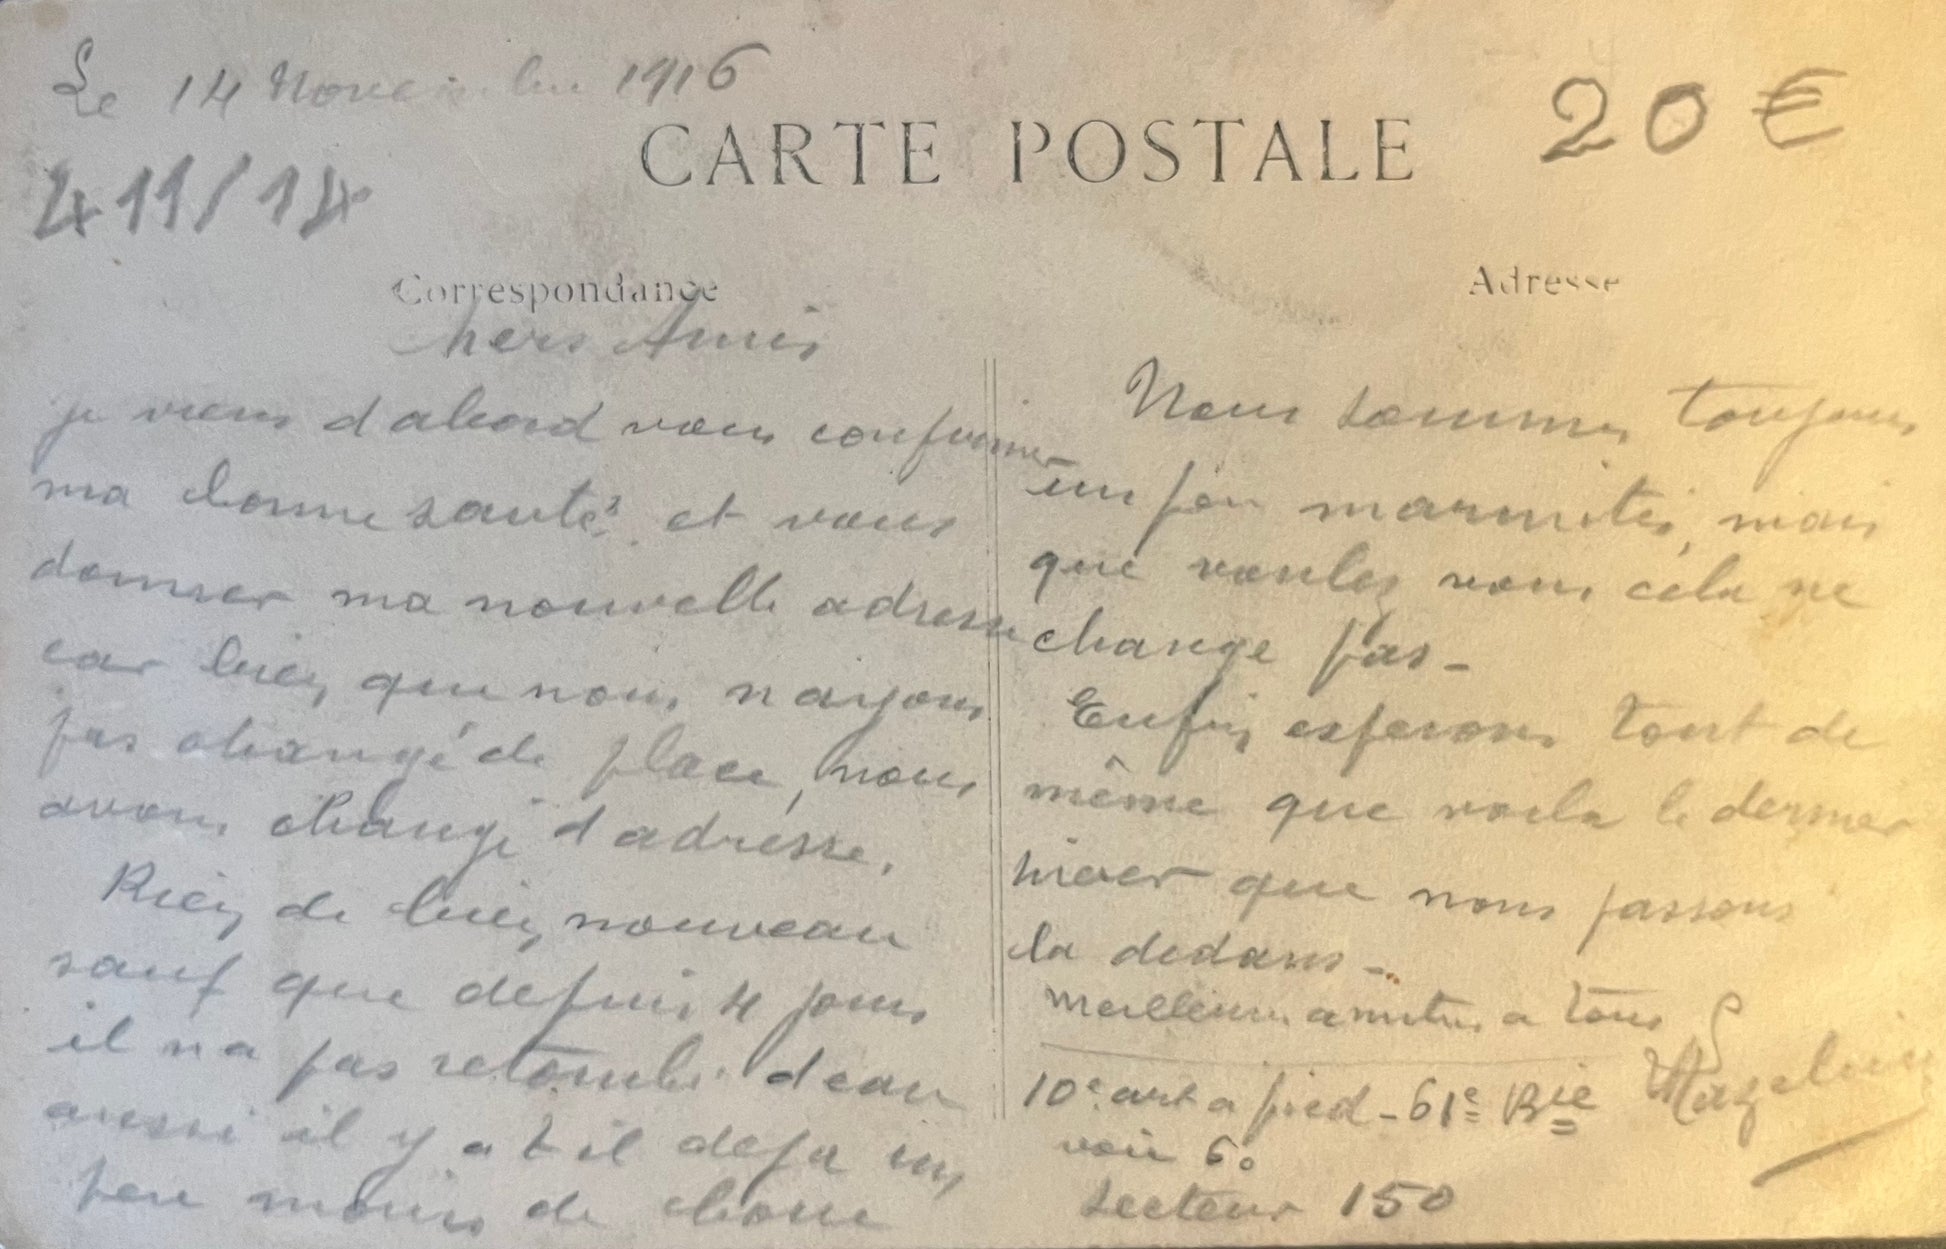 Le 14 Novembre 1916
CARTE POSTALE
20 €
411/14
Correspondance
Adresse
chers Amis
je viens d abord vous confirmer
ma bonne santé et vous
donner ma nouvelle adresse
car bien que nous n ayons
pas changé de place, nous
avons changé d adresse.
Rien de bien nouveau
sauf que depuis 4 jours
il n a pas retombé d eau
aussi il y a t il deja un
peu moins de boue
Nous sommes toujours
un peu marmités, mais
que voulez vous cela ne
change pas -
Enfin esperons tout de
même que voila le dernier
hiver que nous passons
la dedans -
meilleures amitiés a tous
10e art a pied - 61e Bie
voie 60
Secteur 150